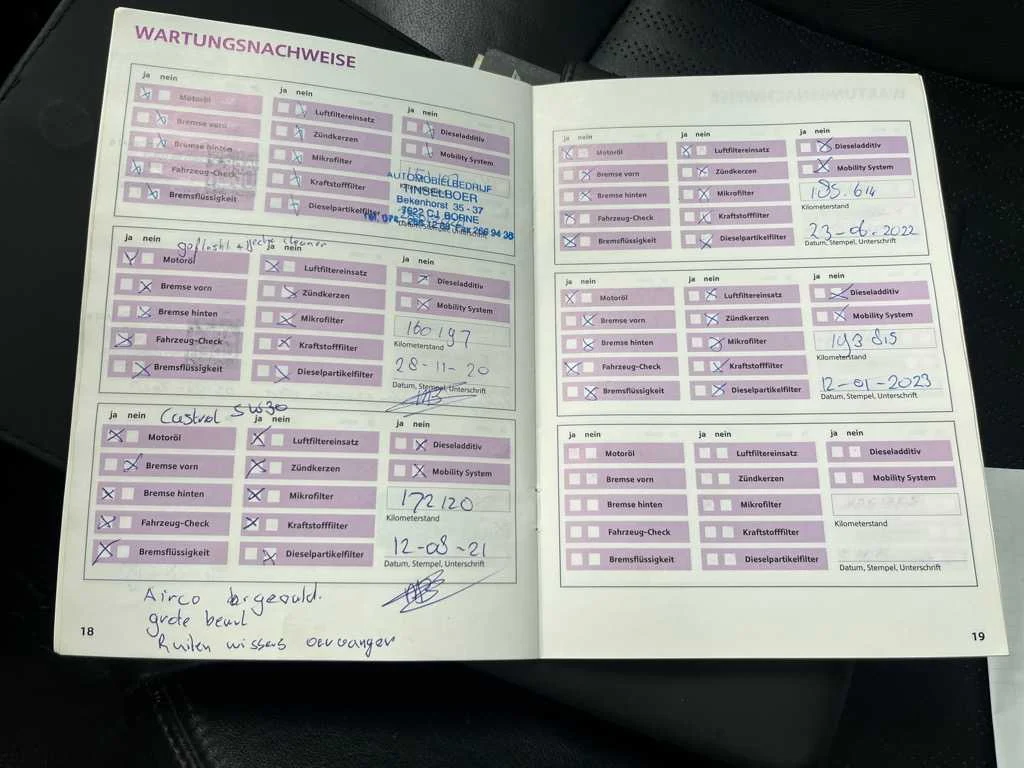 WARTUNGSNACHWEISE
ja nein
Motoröl
Bremse vorn
Bremse hinten
Fahrzeug-Check
Bremsflüssigkeit
ja nein
Luftfiltereinsatz
Zündkerzen
Mikrofilter
Kraftstofffilter
Dieselpartikelfilter
ja nein
Dieseladditiv
Mobility System
AUTOMOBIELBEDRIJF
TINSELBOER
Bekenhorst 35 - 37
7622 CJ BORNE
Datum, Stempel, Unterschrift
ja nein
geflusht +
cleaner
Motoröl
Bremse vorn
Bremse hinten
Fahrzeug-Check
Bremsflüssigkeit
ja nein
Luftfiltereinsatz
Zündkerzen
Mikrofilter
Kraftstofffilter
Dieselpartikelfilter
ja nein
Dieseladditiv
Mobility System
160197
Kilometerstand
28-11-20
Datum, Stempel, Unterschrift
ja nein
Castrol 5W30
Motoröl
Bremse vorn
Bremse hinten
Fahrzeug-Check
Bremsflüssigkeit
ja nein
Luftfiltereinsatz
Zündkerzen
Mikrofilter
Kraftstofffilter
Dieselpartikelfilter
ja nein
Dieseladditiv
Mobility System
172120
Kilometerstand
12-08-21
Datum, Stempel, Unterschrift
Airco
grote beurt
Ruiten wissers vervangen
18
ja nein
Motoröl
Bremse vorn
Bremse hinten
Fahrzeug-Check
Bremsflüssigkeit
ja nein
Luftfiltereinsatz
Zündkerzen
Mikrofilter
Kraftstofffilter
Dieselpartikelfilter
ja nein
Dieseladditiv
Mobility System
185.614
Kilometerstand
23-06-2022
Datum, Stempel, Unterschrift
ja nein
Motoröl
Bremse vorn
Bremse hinten
Fahrzeug-Check
Bremsflüssigkeit
ja nein
Luftfiltereinsatz
Zündkerzen
Mikrofilter
Kraftstofffilter
Dieselpartikelfilter
ja nein
Dieseladditiv
Mobility System
193815
Kilometerstand
12-01-2023
Datum, Stempel, Unterschrift
ja nein
Motoröl
Bremse vorn
Bremse hinten
Fahrzeug-Check
Bremsflüssigkeit
ja nein
Luftfiltereinsatz
Zündkerzen
Mikrofilter
Kraftstofffilter
Dieselpartikelfilter
ja nein
Dieseladditiv
Mobility System
Kilometerstand
Datum, Stempel, Unterschrift
19